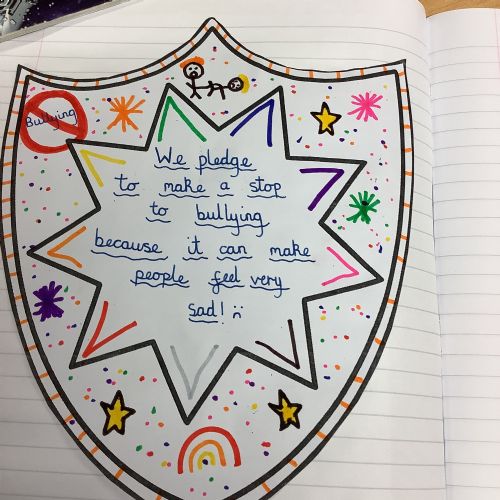 Bullying
We pledge
to make a stop
to bullying
because it can make
people feel very
sad! :(